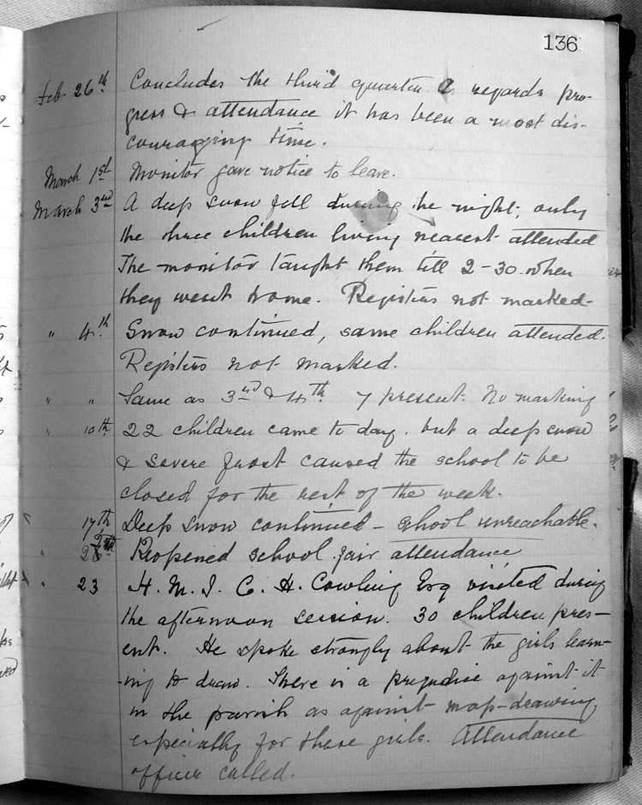 136
Feb 26th Concludes the third quarter as regards pro-
gress & attendance it has been a most dis-
couraging time.
March 1st Monitor gave notice to leave.
March 3rd A deep snow fell during the night, only
the three children living nearest attended
The monitor taught them till 2-30. when
they went home. Registers not marked-
" 4th Snow continued, same children attended.
Registers not marked.
" " Same as 3rd & 4th 7 present. No marking
" 10th 22 children came to day. but a deep snow
& severe frost caused the school to be
closed for the rest of the week.
17th Deep snow continued - school unreachable.
" 22nd Reopened school fair attendance
" 23 H. M. I. C. H. Cowling Esq visited during
the afternoon session. 30 children pres-
ent. He spoke strongly about the girls learn-
ing to draw. There is a prejudice against it
in the parish as against map-drawing
especially for these girls. Attendance
officer called.